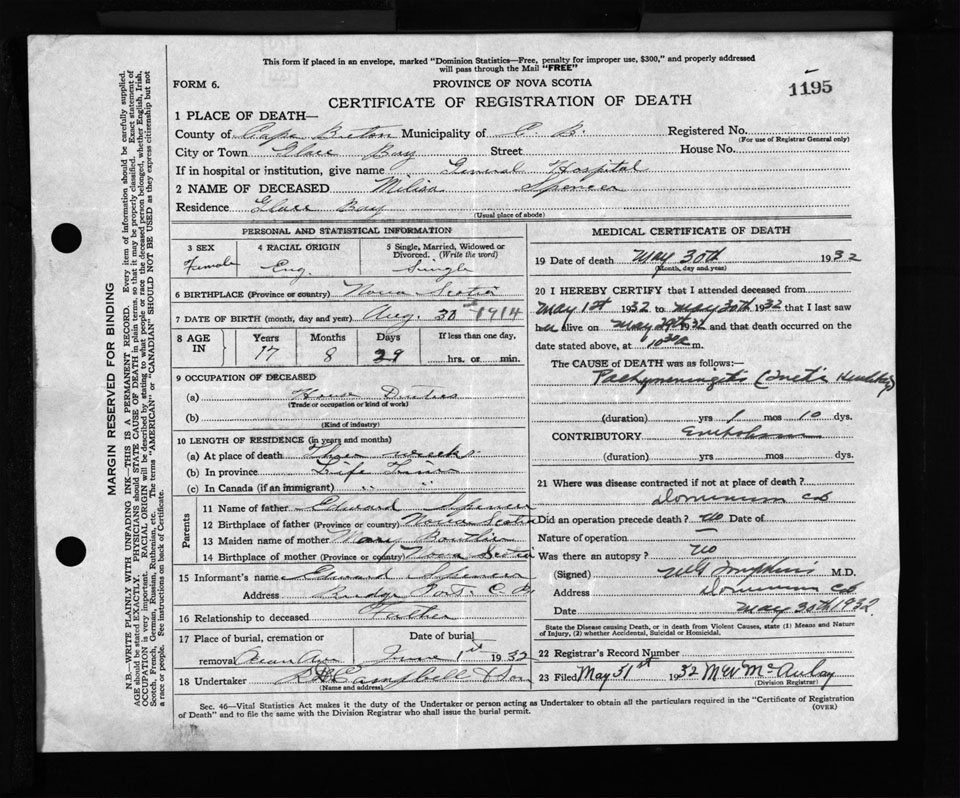 This form if placed in an envelope, marked "Dominion Statistics—Free, penalty for improper use, $300," and properly addressed
will pass through the Mail "FREE"
FORM 6.
PROVINCE OF NOVA SCOTIA
1195
CERTIFICATE OF REGISTRATION OF DEATH
1 PLACE OF DEATH—
County of Cape Breton Municipality of C. B. Registered No.
(For use of Registrar General only)
City or Town Glace Bay Street House No.
If in hospital or institution, give name General Hospital
2 NAME OF DECEASED Melisa Spencer
Residence Glace Bay
(Usual place of abode)
PERSONAL AND STATISTICAL INFORMATION
3 SEX 4 RACIAL ORIGIN 5 Single, Married, Widowed or
Divorced. (Write the word)
Female Eng. Single
6 BIRTHPLACE (Province or country) Nova Scotia
7 DATE OF BIRTH (month, day and year) Aug. 30th 1914
8 AGE IN Years Months Days If less than one day,
17 8 29 hrs. or min.
9 OCCUPATION OF DECEASED
(a) House Duties
(Trade or occupation or kind of work)
(b)
(Kind of industry)
10 LENGTH OF RESIDENCE (in years and months)
(a) At place of death Three weeks
(b) In province Life Time
(c) In Canada (if an immigrant) " "
Parents
11 Name of father Edward Spencer
12 Birthplace of father (Province or country) Nova Scotia
13 Maiden name of mother Mary Boutlier
14 Birthplace of mother (Province or country) Nova Scotia
15 Informant's name Edward Spencer
Address Bridge Port. C. B.
16 Relationship to deceased Father
17 Place of burial, cremation or Date of burial
removal June 1st 1932
18 Undertaker Campbell & Son
(Name and address)
MEDICAL CERTIFICATE OF DEATH
19 Date of death May 30th 1932
(Month, day and year)
20 I HEREBY CERTIFY that I attended deceased from
May 1st 1932 to May 30th 1932 that I last saw
her alive on May 29th 1932 and that death occurred on the
date stated above, at 10 30 a m.
The CAUSE of DEATH was as follows:—
Pachymeningitis
(duration) yrs 1 mos 10 dys.
CONTRIBUTORY
(duration) yrs. mos. dys.
21 Where was disease contracted if not at place of death?
Dominion CB
Did an operation precede death? no Date of
Nature of operation —
Was there an autopsy? no
(Signed) M.D.
Address Dominion CB
Date May 30th 1932
State the Disease causing Death, or in death from Violent Causes, state (1) Means and Nature
of Injury, (2) whether Accidental, Suicidal or Homicidal.
22 Registrar's Record Number
23 Filed May 31st 1932 McAulay
(Division Registrar)
Sec. 46—Vital Statistics Act makes it the duty of the Undertaker or person acting as Undertaker to obtain all the particulars required in the "Certificate of Registration
of Death" and to file the same with the Division Registrar who shall issue the burial permit.
(OVER)
MARGIN RESERVED FOR BINDING
N.B.—WRITE PLAINLY WITH UNFADING INK—THIS IS A PERMANENT RECORD. Every item of information should be carefully supplied.
AGE should be stated EXACTLY. PHYSICIANS should STATE CAUSE OF DEATH in plain terms, so that it may be properly classified. Exact statement of
OCCUPATION is very important. RACIAL ORIGIN will be described by stating to what people or race the deceased person belonged, whether English, Irish,
Scotch, French, German, Russian, Ruthenian, etc. The terms "AMERICAN" or "CANADIAN" SHOULD NOT BE USED as they express citizenship but not
a race or people. See instructions on back of Certificate.